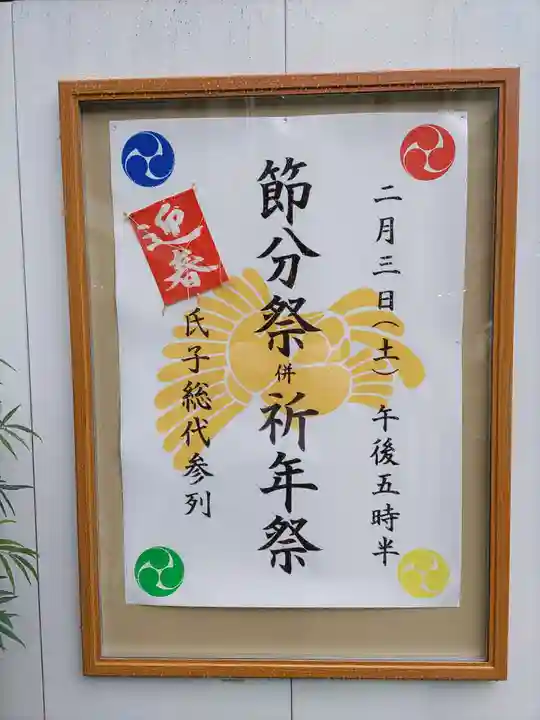 二月三日(土) 午後五時半
節分祭併祈年祭
迎春
氏子総代参列